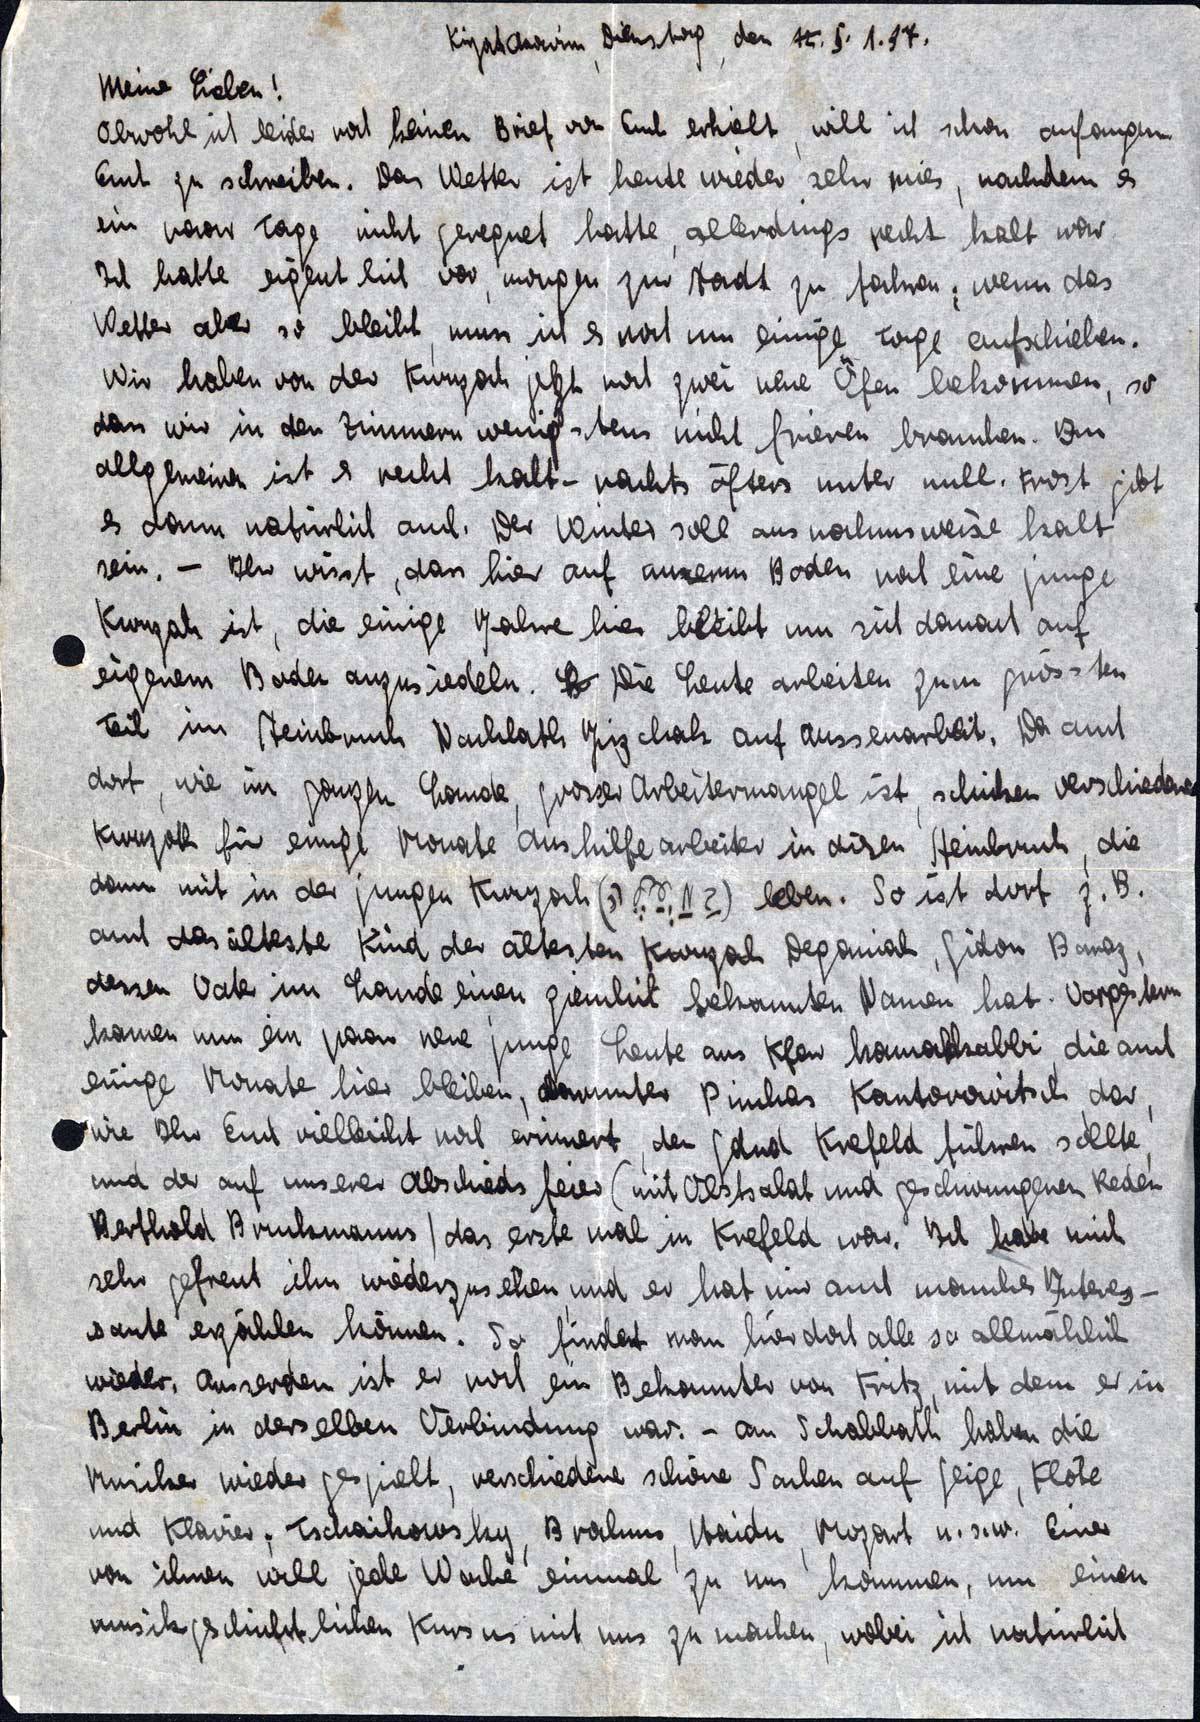 Kirjat Anavim, Dienstag, den 5.1.37.
Meine Lieben!
Obwohl ich leider noch keinen Brief von Euch erhielt, will ich schon anfangen
Euch zu schreiben. Das Wetter ist heute wieder sehr mies, nachdem es
ein paar Tage nicht geregnet hatte, allerdings recht kalt war
Ich hatte eigentlich vor, morgen zur Stadt zu fahren; wenn das
Wetter aber so bleibt, muss ich es noch um einige Tage aufschieben.
Wir haben von der Kwuzah jetzt noch zwei neue Öfen bekommen, so
dass wir in den Zimmern wenigstens nicht frieren brauchen. Im
allgemeinen ist es recht kalt - nachts öfters unter null. Frost gibt
es dann natürlich auch. Der Winter soll ausnahmsweise kalt
sein. - Ihr wisst, dass hier auf unserm Boden noch eine junge
Kwuzah ist, die einige Jahre hier bleibt um sich danach auf
eigenem Boden anzusiedeln. Die Leute arbeiten zum grössten
Teil im Steinbruch Nachlath Jizchak auf Aussenarbeit. Da auch
dort, wie im ganzen Lande, grosser Arbeitermangel ist, schicken verschiedene
Kwuzoth für einige Monate Aushilfearbeiter in diesen Steinbruch, die
dann mit in der jungen Kwuzah ( ) leben. So ist dort z.B.
auch das älteste Kind der ältesten Kwuzah Deganiah, Gidon Baraz,
dessen Vater im Lande einen ziemlich bekannten Namen hat. Vorgestern
kamen nun ein paar neue junge Leute aus Kfar Hamakkabbi, die auch
einige Monate hier bleiben, darunter Pinchas Kantorowitsch, der,
wie Ihr Euch vielleicht noch erinnert, den Gdud Krefeld führen sollte,
und der auf unserer Abschiedsfeier (mit Obstsalat und geschwungenen Reden
Berthold Bruckmanns) das erste mal in Krefeld war. Ich habe mich
sehr gefreut ihn wiederzusehen und er hat mir auch manches Interes-
sante erzählen können. So findet man hier doch alle so allmählich
wieder. Ausserdem ist er noch ein Bekannter von Fritz, mit dem er in
Berlin in derselben Verbindung war. - Am Schabbath haben die
Musiker wieder gespielt, verschiedene schöne Sachen auf Geige, Flöte
und Klavier; Tschaikowsky, Brahms, Haidn, Mozart u.s.w. Einer
von ihnen will jede Woche einmal zu uns kommen, um einen
musikgeschichtlichen Kursus mit uns zu machen, wobei ich natürlich